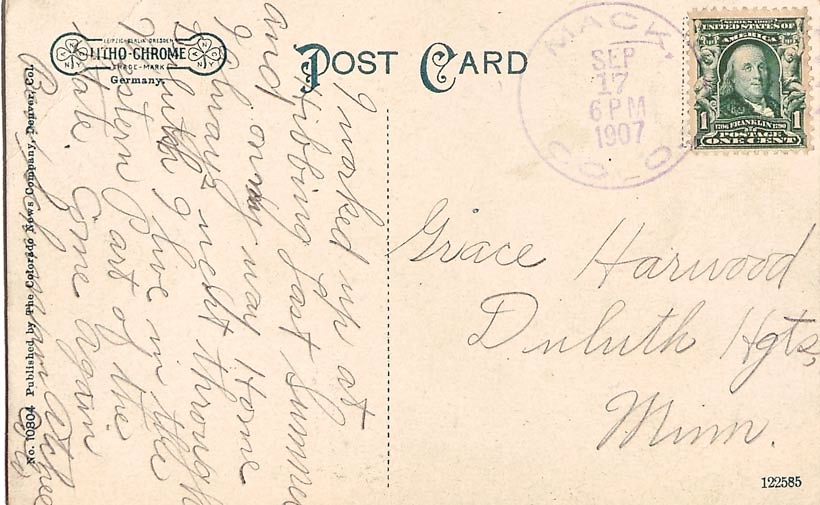 LEIPZIG-BERLIN-DRESDEN
LITHO-CHROME
TRADE-MARK
Germany.
POST CARD
MACK,
SEP
17
6 PM
1907
COLO
SERIES 1902
UNITED STATES OF
AMERICA
1 1706 FRANKLIN 1790 1
POSTAGE
ONE CENT
I worked up at
Hibbing Last Summer
and on my way Home
I always went through
Duluth I live in the
Western Part of the
State. Come again
Grace Harwood
Duluth Hgts,
Minn.
No. 10804 Published by The Colorado News Company, Denver, Col.
122585